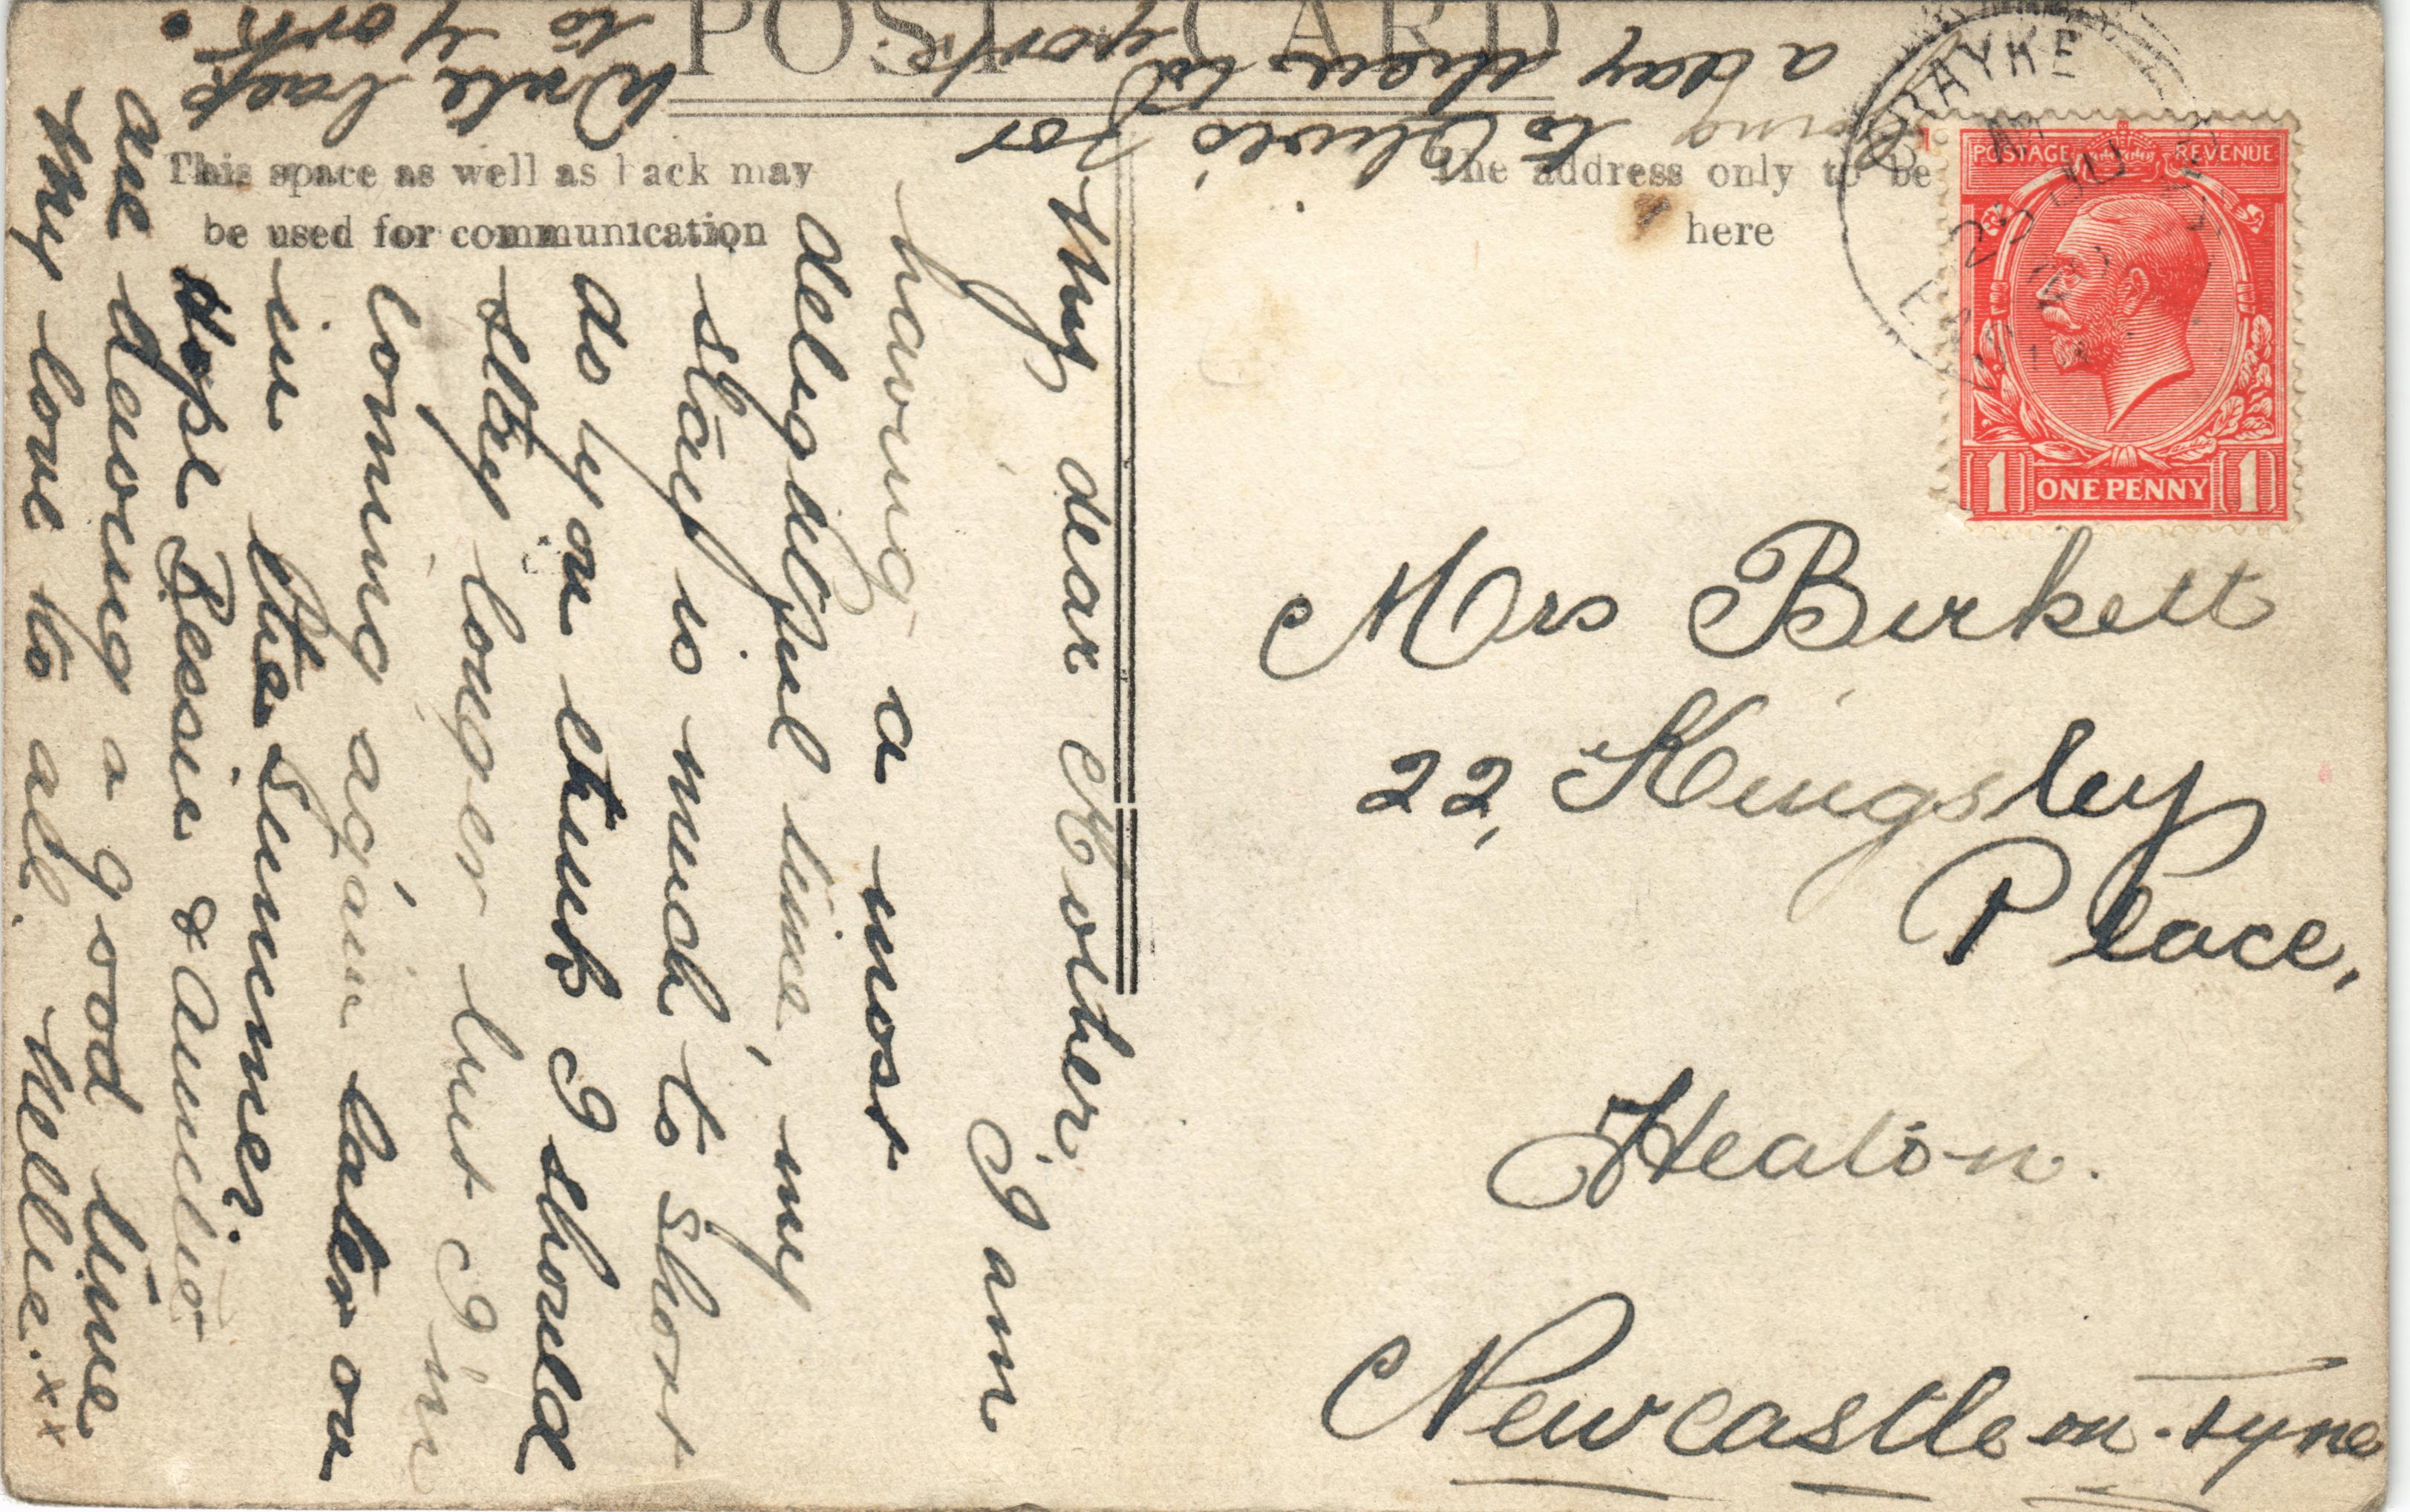 POST CARD
This space as well as back may
be used for communication
The address only to be
here
POSTAGE REVENUE
1 ONE PENNY 1
CRAYKE
23 JU
Mrs Birkett
22, Kingsley
Place,
Heaton.
Newcastle on-Tyne
My dear Mother,
I am
having a most
delightful time, my
stay is much to short
do you think I should
stay longer but I'm
coming again later on
in the Summer.
Hope Bessie &
are having a good time
My love to all. Nellie. xx
going to Olive's for
a day then to York
Write back
to York.